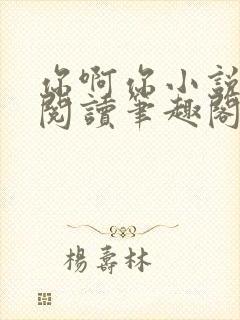 你啊你小說
閱讀筆趣閣
楊壽林